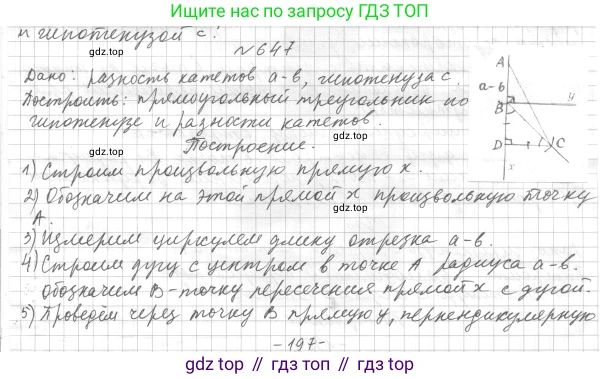 Ищите нас по запросу ГДЗ ТОП
и гипотенузой c!
gdz.top
№ 647
Дано: разность катетов a-в, гипотенуза c.
Построить: прямоугольный треугольник по
гипотенузе и разности катетов.
A
a-в
y
B
D
C
x
Построение.
1) Строим произвольную прямую x.
2) Обозначим на этой прямой x произвольную точку
A.
gdz.top
3) Измерим циркулем длину отрезка a-в.
4) Строим дугу с центром в точке A радиуса a-в.
обозначим B-точку пересечения прямой x с дугой.
5) Проведём через точку B прямую y, перпендикулярную
-197-
gdz top // gdz top // gdz.top